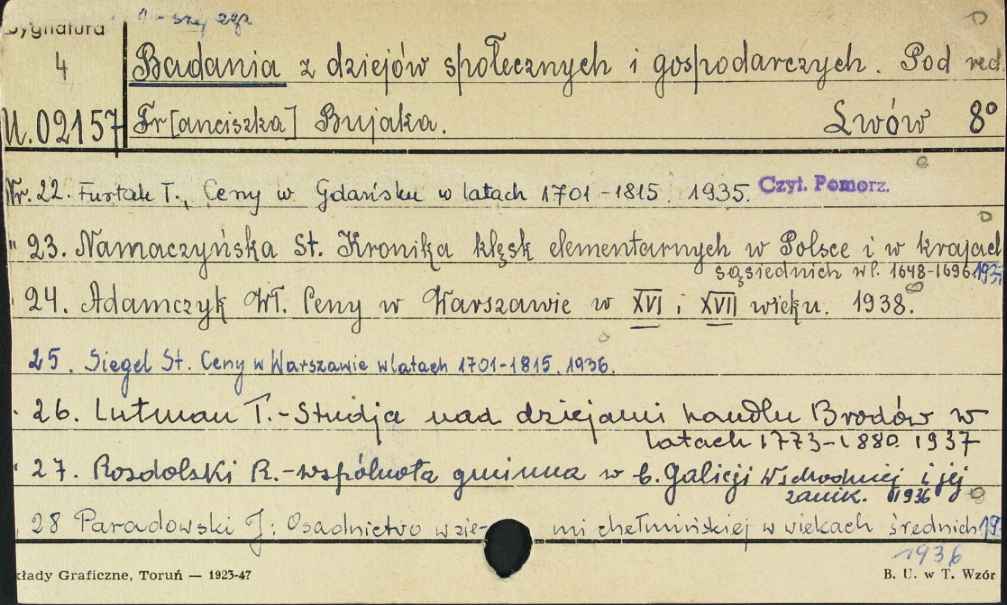 Sygnatura
4
U.02157
Badania z dziejów społecznych i gospodarczych. Pod red
Fr[anciszka] Bujaka. Lwów 8°
Nr. 22. Furtak T., Ceny w Gdańsku w latach 1701-1815. 1935. Czyt. Pomorz.
" 23. Namaczyńska St. Kronika klęsk elementarnych w Polsce i w krajach
sąsiednich w l. 1648-1696 193
24. Adamczyk Wł. Ceny w Warszawie w XVI i XVII wieku. 1938.
25. Siegel St. Ceny w Warszawie w latach 1701-1815. 1936.
" 26. Lutman T. - Studja nad dziejami handlu Brodów w
latach 1773-1880 1937
" 27. Rozdolski R. - wspólnota gminna w b. Galicji Wschodniej i jej
zanik. 1936
28 Paradowski J: Osadnictwo w zie- mi chełmińskiej w wiekach średnich 19
1936
kłady Graficzne, Toruń — 1923-47 B. U. w T. Wzór